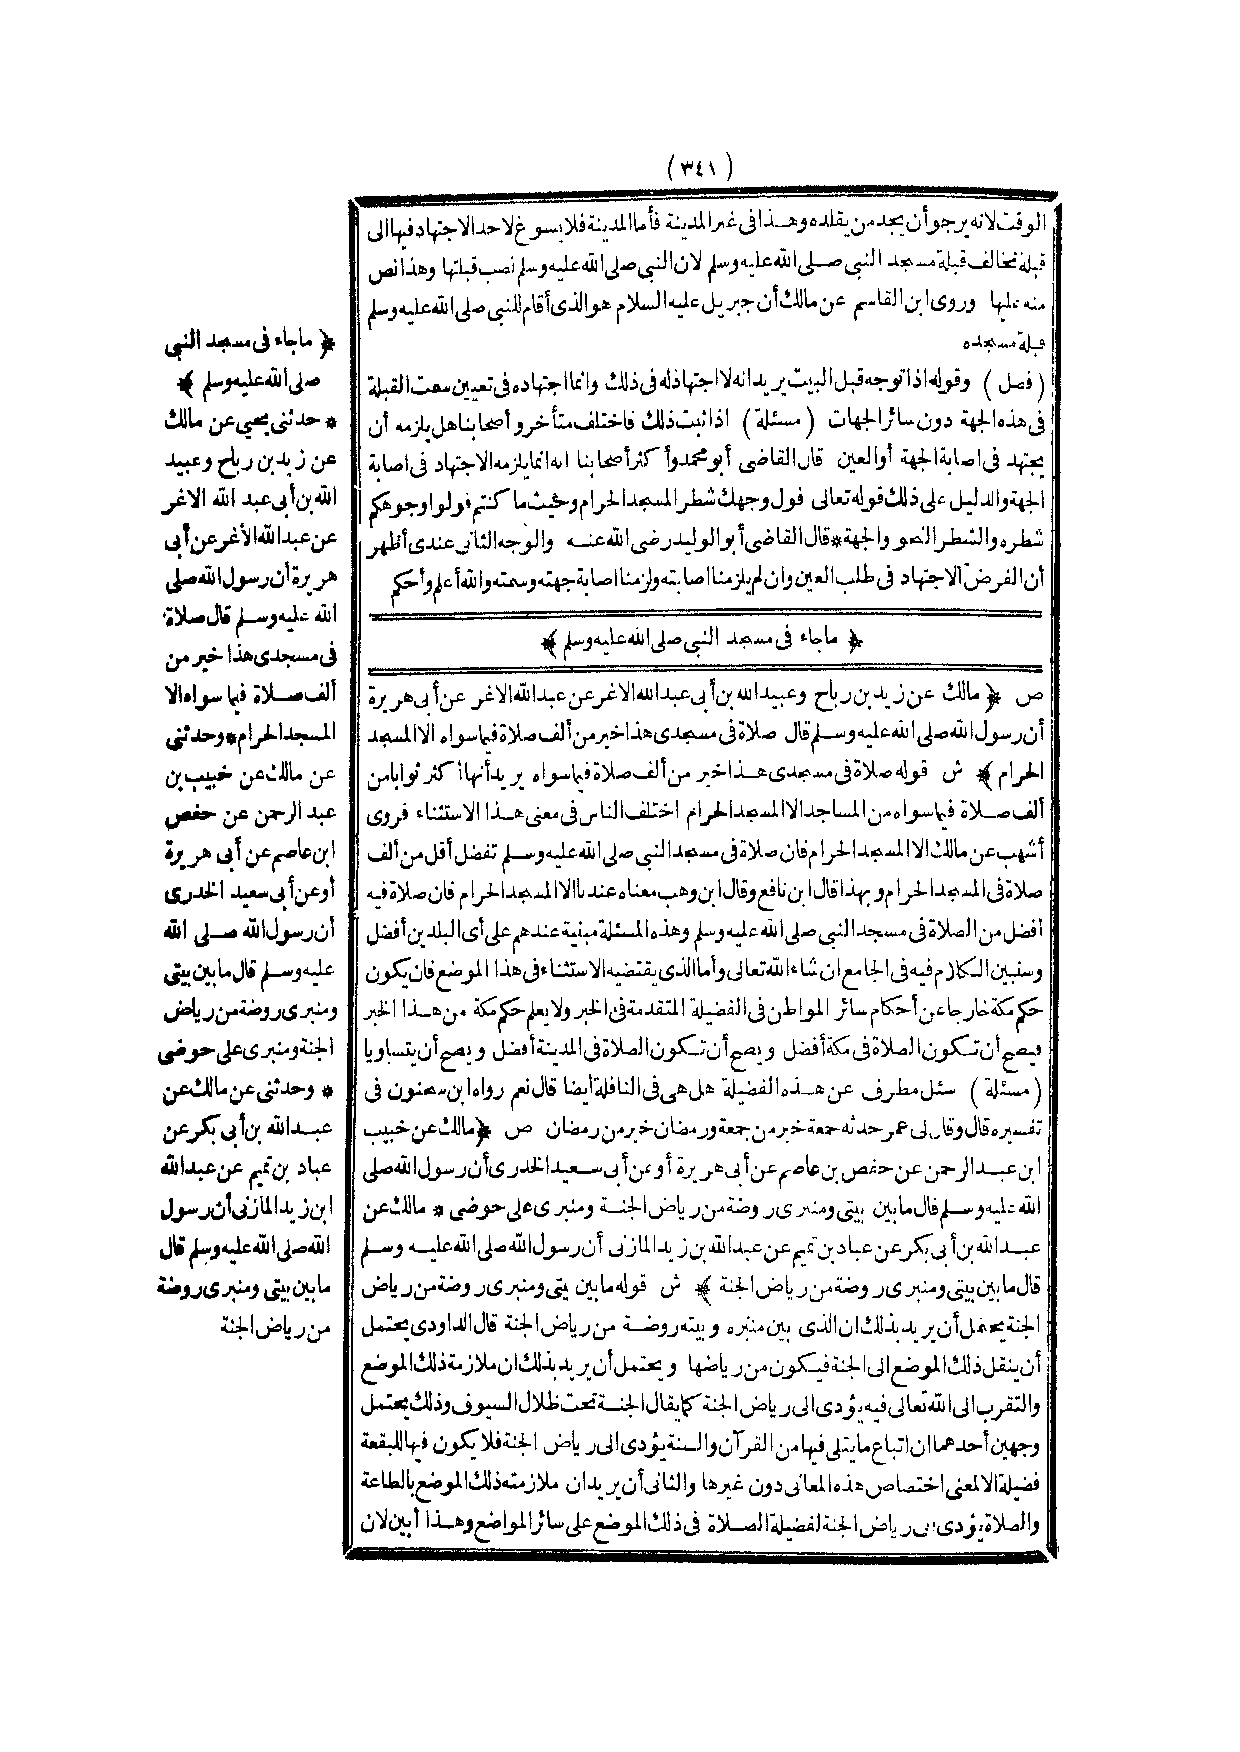 (٣٤١)
الوقت لانه يرجو أن يجد من يقلده وهذا فى غير المدينة فأما المدينة فلا يسوغ لاحد الاجتهاد فيها الى
قبلة تخالف قبلة مسجد النبي صلى الله عليه وسلم لان النبي صلى الله عليه وسلم نصب قبلتها وهذا نص
منه عليها وروى ابن القاسم عن مالك أن جبريل عليه السلام هو الذى أقام للنبي صلى الله عليه وسلم
قبلة مسجده
(فصل) وقوله اذا توجه قبل البيت يريد انه لا اجتهاد له فى ذلك وانما اجتهاده فى تعيين سمت القبلة
فى هذه الجهة دون سائر الجهات (مسئلة) اذا ثبت ذلك فاختلف متأخرو أصحابنا هل يلزمه أن
يجتهد فى اصابة الجهة أو العين قال القاضى أبو محمد وأكثر أصحابنا انه انما يلزمه الاجتهاد فى اصابة
الجهة والدليل على ذلك قوله تعالى فول وجهك شطر المسجد الحرام وحيث ما كنتم فولوا وجوهكم
شطره والشطر النحو والجهة * قال القاضى أبو الوليد رضى الله عنه والوجه الثانى عندى أظهر
أن الفرض الاجتهاد فى طلب العين وان لم يلزمنا اصابته ولزمنا اصابة جهته وسمته والله أعلم وأحكم
﴿ ماجاء فى مسجد النبي صلى الله عليه وسلم ﴾
ص ﴿ مالك عن زيد بن رباح وعبيد الله بن أبى عبد الله الاغر عن عبد الله الاغر عن أبى هريرة
أن رسول الله صلى الله عليه وسلم قال صلاة فى مسجدى هذا خير من ألف صلاة فيما سواه الا المسجد
الحرام ﴾ ش قوله صلاة فى مسجدى هذا خير من ألف صلاة فيما سواه يريد أنها أكثر ثوابا من
ألف صلاة فيما سواه من المساجد الا المسجد الحرام اختلف الناس فى معنى هذا الاستثناء فروى
أشهب عن مالك الا المسجد الحرام فان صلاة فى مسجد النبي صلى الله عليه وسلم تفضل أقل من ألف
صلاة فى المسجد الحرام وبهذا قال ابن نافع وقال ابن وهب معناه عندنا الا المسجد الحرام فان صلاة فيه
أفضل من الصلاة فى مسجد النبي صلى الله عليه وسلم وهذه المسئلة مبنية عندهم على أى البلدين أفضل
وسنبين الكلام فيه فى الجامع ان شاء الله تعالى وأما الذى يقتضيه الاستثناء فى هذا الموضع فان يكون
حكم مكة خارجا عن أحكام سائر المواطن فى الفضيلة المتقدمة فى الخبر ولا يعلم حكم مكة من هذا الخبر
فيصح أن تكون الصلاة فى مكة أفضل ويصح أن تكون الصلاة فى المدينة أفضل ويصح أن يتساويا
(مسئلة) سئل مطرف عن هذه الفضيلة هل هى فى النافلة أيضا قال نعم رواه ابن سحنون فى
تفسيره قال وقال لى عمر حدثه جمعة خير من جمعة ورمضان خير من رمضان ص ﴿ مالك عن خبيب
ابن عبد الرحمن عن حفص بن عاصم عن أبى هريرة أو عن أبى سعيد الخدرى أن رسول الله صلى
الله عليه وسلم قال ما بين بيتى ومنبرى روضة من رياض الجنة ومنبرى على حوضى * مالك عن
عبد الله بن أبى بكر عن عباد بن تميم عن عبد الله بن زيد المازنى أن رسول الله صلى الله عليه وسلم
قال ما بين بيتى ومنبرى روضة من رياض الجنة ﴾ ش قوله ما بين بيتى ومنبرى روضة من رياض
الجنة يحتمل أن يريد بذلك ان الذى بين منبره وبيته روضة من رياض الجنة قال الداودى يحتمل
أن ينقل ذلك الموضع الى الجنة فيكون من رياضها ويحتمل أن يريد بذلك ان ملازمة ذلك الموضع
والتقرب الى الله تعالى فيه يؤدى الى رياض الجنة كما يقال الجنة تحت ظلال السيوف وذلك يحتمل
وجهين أحدهما ان اتباع ما يتلى فيها من القرآن والسنة يؤدى الى رياض الجنة فلا يكون فيها للبقعة
فضيلة الا لمعنى اختصاص هذه المعانى دون غيرها والثانى أن يريد ان ملازمته ذلك الموضع بالطاعة
والصلاة يؤدى الى رياض الجنة لفضيلة الصلاة فى ذلك الموضع على سائر المواضع وهذا أبين لان
﴿ ماجاء فى مسجد النبي
صلى الله عليه وسلم ﴾
* حدثنى يحيى عن مالك
عن زيد بن رباح وعبيد
الله بن أبى عبد الله الاغر
عن عبد الله الأغر عن أبى
هريرة أن رسول الله صلى
الله عليه وسلم قال صلاة
فى مسجدى هذا خير من
ألف صلاة فيما سواه الا
المسجد الحرام * وحدثنى
عن مالك عن خبيب بن
عبد الرحمن عن حفص
ابن عاصم عن أبى هريرة
أو عن أبى سعيد الخدرى
أن رسول الله صلى الله
عليه وسلم قال ما بين بيتى
ومنبرى روضة من رياض
الجنة ومنبرى على حوضى
* وحدثنى عن مالك عن
عبد الله بن أبى بكر عن
عباد بن تميم عن عبد الله
ابن زيد المازنى أن رسول
الله صلى الله عليه وسلم قال
ما بين بيتى ومنبرى روضة
من رياض الجنة